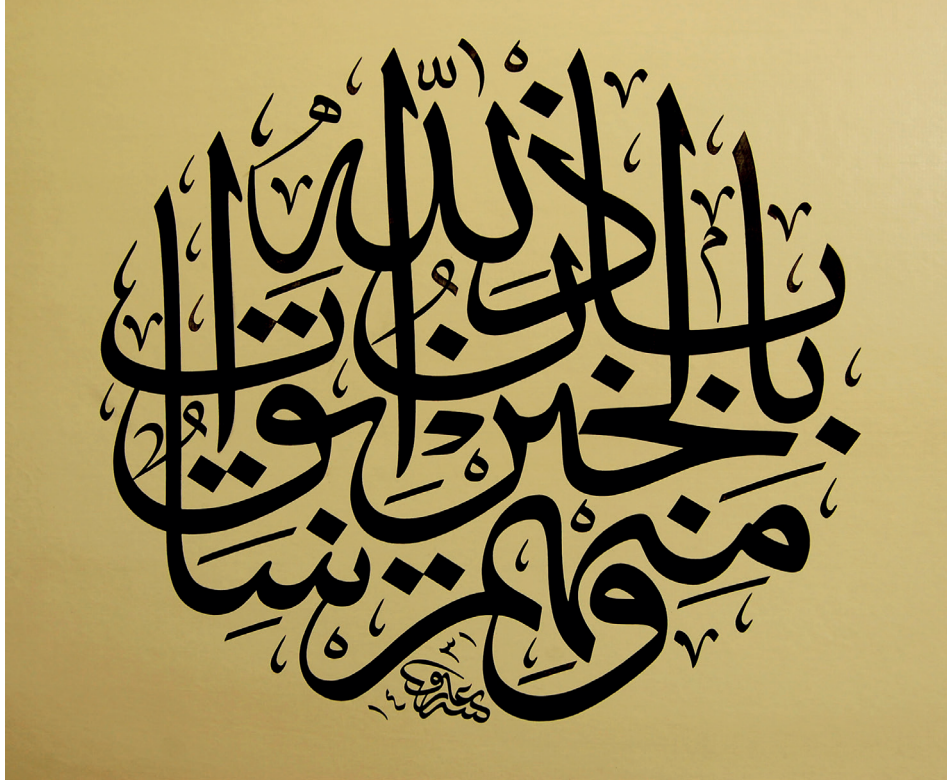 ومنهم سابق بالخيرات بإذن الله